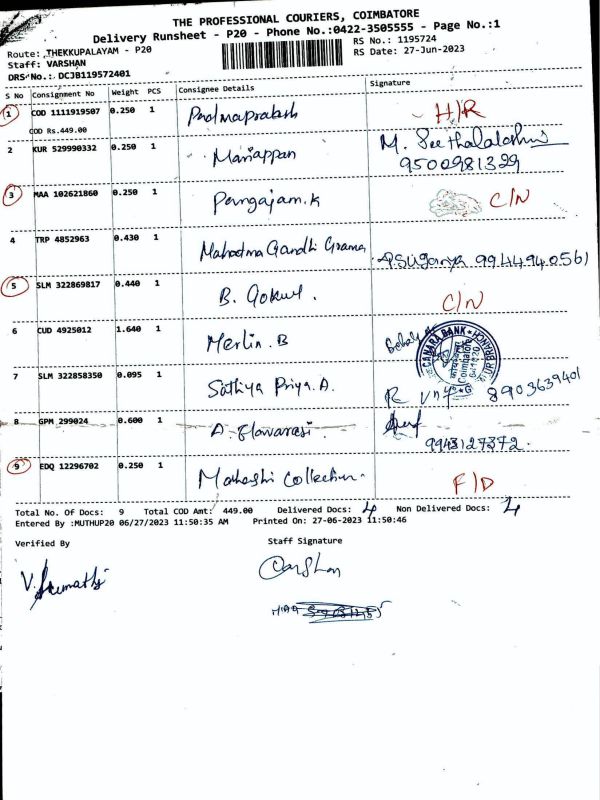 THE PROFESSIONAL COURIERS, COIMBATORE
Delivery Runsheet - P20 - Phone No.:0422-3505555 - Page No.:1
Route: THEKKUPALAYAM - P20
Staff: VARSHAN
DRS No.: DCJB119572401
RS No.: 1195724
RS Date: 27-Jun-2023
S No Consignment No Weight PCS Consignee Details Signature
1 COD 1111919507 0.250 1 Padmaprakash H/R
COD Rs.449.00
2 KUR 529990332 0.250 1 Mariappan M. Seethalakshmi
9500981329
3 MAA 102621860 0.250 1 Pangajam.K C/N
4 TRP 4852963 0.430 1 Mahatma Gandhi Grama Psuganya 9944940561
5 SLM 322869817 0.440 1 B. Gokul. C/N
6 CUD 4925012 1.640 1 Merlin.B
CANARA BANK
Coimbatore
7 SLM 322858350 0.095 1 Sathiya Priya.A. 8903639401
8 GPM 299024 0.600 1 A. Elavarasi.
9943127372.
9 EDQ 12296702 0.250 1 Collection. F/D
Total No. Of Docs: 9 Total COD Amt: 449.00 Delivered Docs: Non Delivered Docs:
Entered By :MUTHUP20 06/27/2023 11:50:35 AM Printed On: 27-06-2023 11:50:46
Verified By Staff Signature
V. Sumathi Varshan